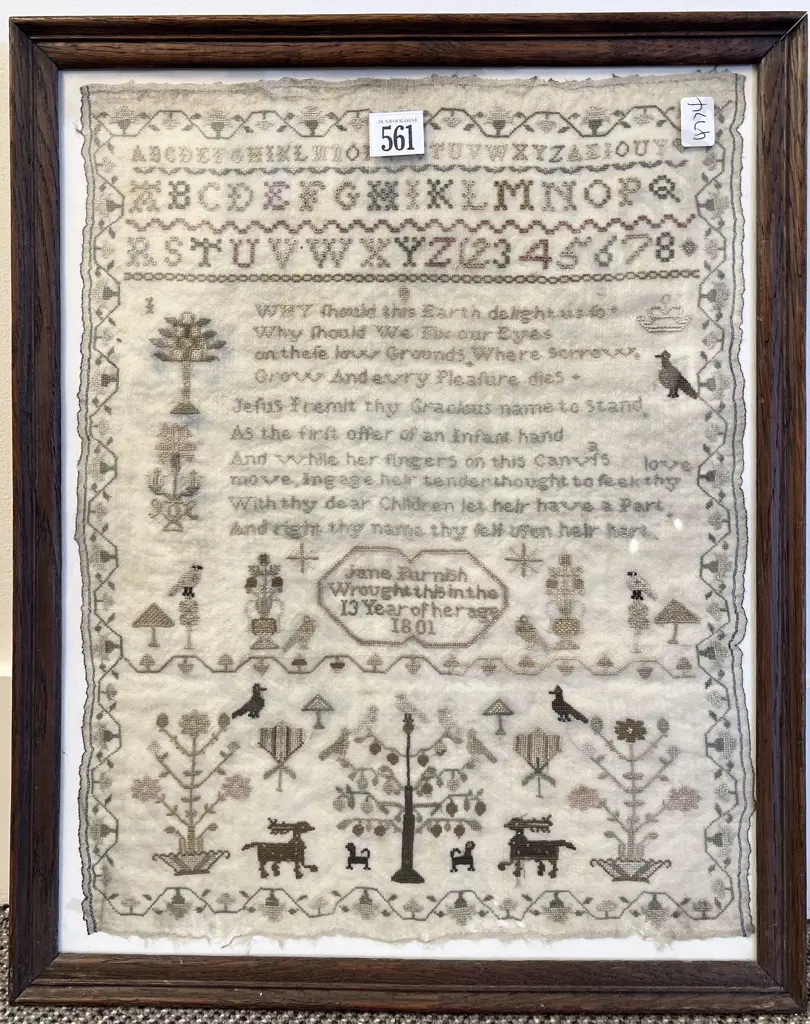 DUNBAR SLOANE
561
4774
ABCDEFGHIKL TUVWXYZAEIOUY
ABCDEFGHIKLMNOPQ
RSTUVWXYZ12345678
WHY ſhould this Earth delight us ſo
Why ſhould We Fix our Eyes
on theſe low Grounds Where Sorrows
Grow And evry Pleaſure dies
Jeſus Premit thy Gracious name to Stand
As the firſt offer of an Infant hand
a
And while her fingers on this Canvſs love
move, Ingage heir tender thought to ſeek thy
With thy dear Children let heir have a Part
And right thy name thy ſelf upon heir hart
Jane Furnish
Wrought this in the
13 Year of her age
1801